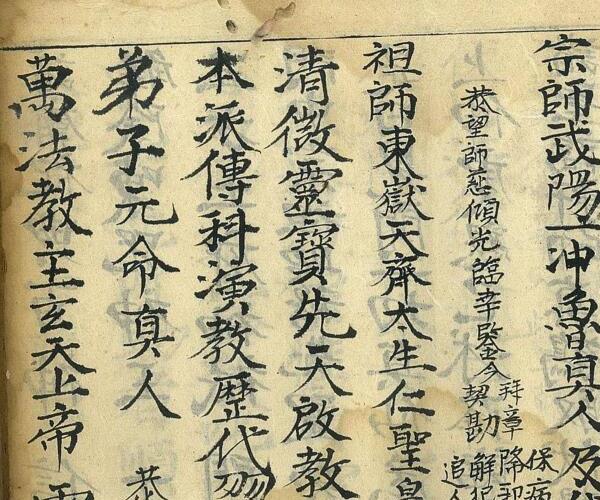 宗師武陽一冲魯真人及
恭望師慈傾光臨幸鑒今
拜章
契勘
保病
降卸
解犯
追
祖師東嶽天齊太生仁聖
清微靈寶先天啟教
本派傳科演教歷代
弟子元命真人
恭
萬法教主玄天上帝